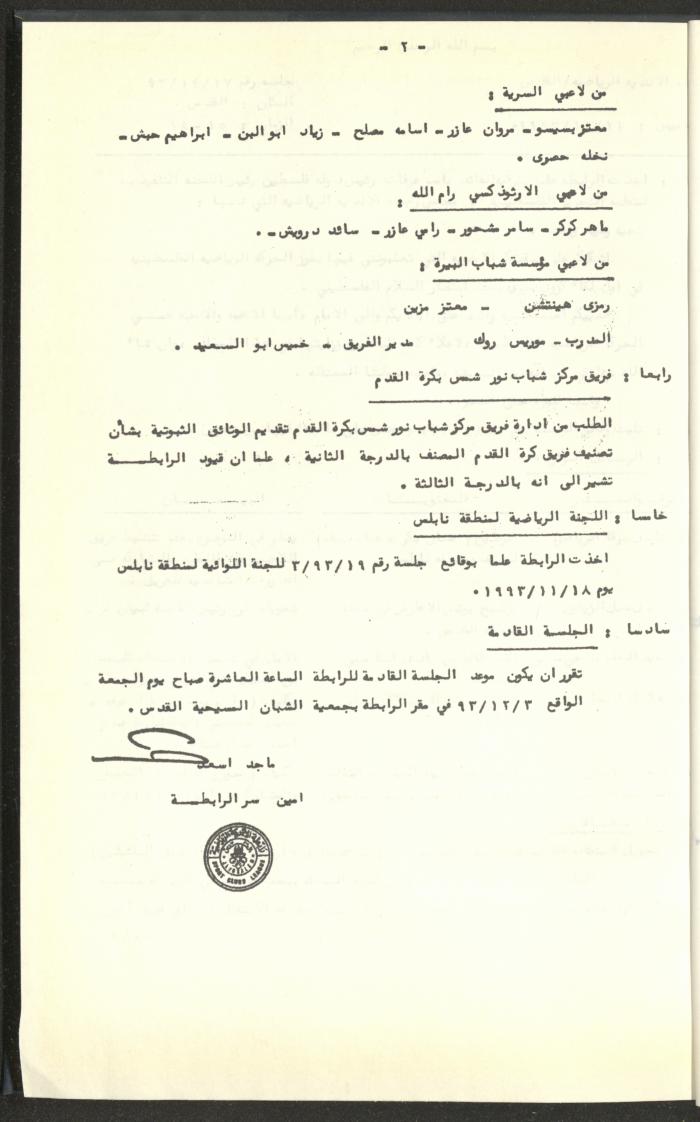 - ٢ -
من لاعبي السرية :
معتز بسيسو - مروان عازر - اسامه مصلح - زياد ابو البن - ابراهيم حبش -
نخله حصرى .
من لاعبي الارثوذكسي رام الله :
ماهر كركر - سامر مشحور - رامي عازر - سائد درويش - .
من لاعبي مؤسسة شباب البيرة :
رمزى هينتشن - معتز مزين
المدرب - موريس روك مدير الفريق - خميس ابو السعيد .
رابعا : فريق مركز شباب نور شمس بكرة القدم
الطلب من ادارة فريق مركز شباب نور شمس بكرة القدم تقديم الوثائق الثبوتية بشأن
تصنيف فريق كرة القدم المصنف بالدرجة الثانية ، علما ان قيود الرابطـــة
تشير الى انه بالدرجة الثالثة .
خامسا : اللجنة الرياضية لمنطقة نابلس
اخذت الرابطة علما بوقائع جلسة رقم ٣/٩٣/١٩ للجنة اللوائية لمنطقة نابلس
يوم ١٩٩٣/١١/١٨ .
سادسا : الجلسة القادمة
تقرر ان يكون موعد الجلسة القادمة للرابطة الساعة العاشرة صباح يوم الجمعة
الواقع ٩٣/١٢/٣ في مقر الرابطة بجمعية الشبان المسيحية القدس .
ماجد اسعد
امين سر الرابطـــة
SPORT CLUBS LEAGUE